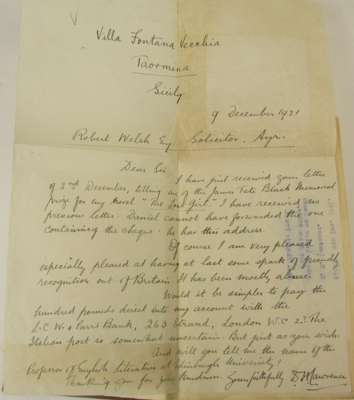 Villa Fontana Vecchia
Taormina
Sicily
9 December 1921
Robert Welsh Esq Solicitor. Ayr.
Dear Sir
I have just received your letter
of 2nd December, telling me of the James Tait Black Memorial
prize for my novel "The Lost Girl." I have received no
previous letter. Daniel cannot have forwarded the one
containing the cheque - he has this address.
Of course I am very pleased
especially pleased at having at last some spark of friendly
recognition out of Britain. It has been mostly abuse.
Would it be simplest to pay the
hundred pounds direct into my account with the
L.C.W. & Parrs Bank, 263 Strand, London W.C. 2. The
Italian post is somewhat uncertain. But just as you wish.
And will you tell me the name of the
Professor of English Literature at Edinburgh University?
Thanking you for your kindness. Yours faithfully D.H. Lawrence